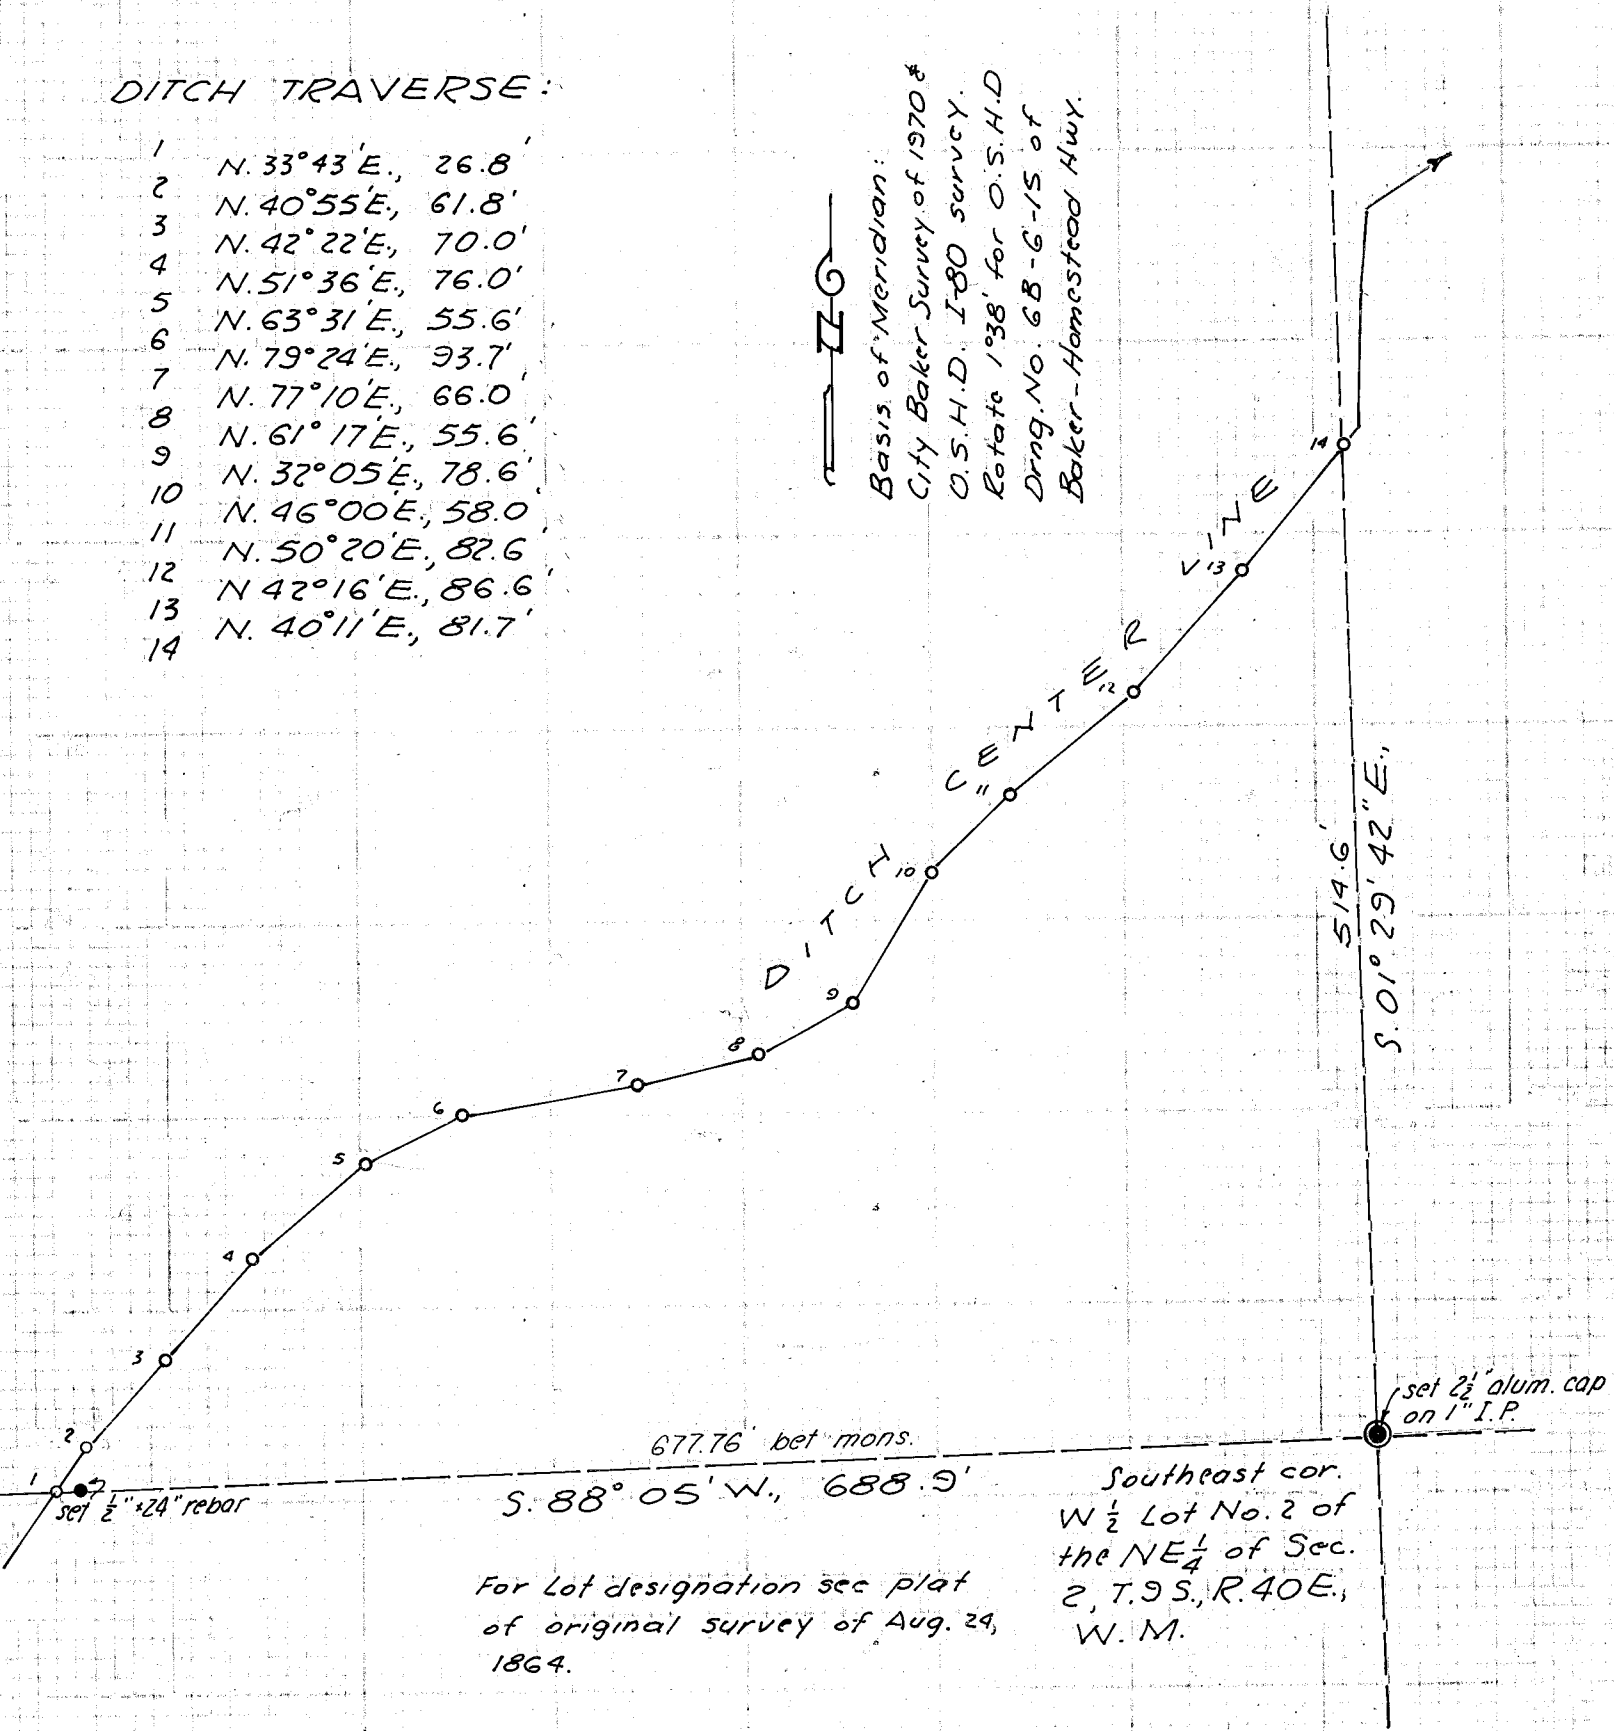 DITCH TRAVERSE:
1
N. 33°43'E., 26.8'
2
N. 40°55'E., 61.8'
3
N. 42°22'E., 70.0'
4
N. 51°36'E., 76.0'
5
N. 63°31'E., 55.6'
6
N. 79°24'E., 93.7'
7
N. 77°10'E., 66.0'
8
N. 61°17'E., 55.6'
9
N. 32°05'E., 78.6'
10
N. 46°00'E., 58.0'
11
N. 50°20'E., 82.6'
12
N 42°16'E., 86.6'
13
N. 40°11'E., 81.7'
14
Basis of Meridian:
City Baker Survey of 1970 &
O.S.H.D. I-80 survey.
Rotate 1°38' for O.S.H.D
Drng. No. 6B-6-15 of
Baker-Homestead Hwy.
14
13
12
11
10
9
8
7
6
5
4
3
2
1
DITCH CENTER VINE
514.6'
S. 01° 29' 42" E.,
set 2½" alum. cap
on 1" I.P.
677.76' bet mons.
S. 88° 05' W., 688.9'
set ½"x24" rebar
Southeast cor.
W ½ Lot No. 2 of
the NE¼ of Sec.
2, T. 9 S., R. 40 E.,
W. M.
For Lot designation see plat
of original survey of Aug. 24,
1864.